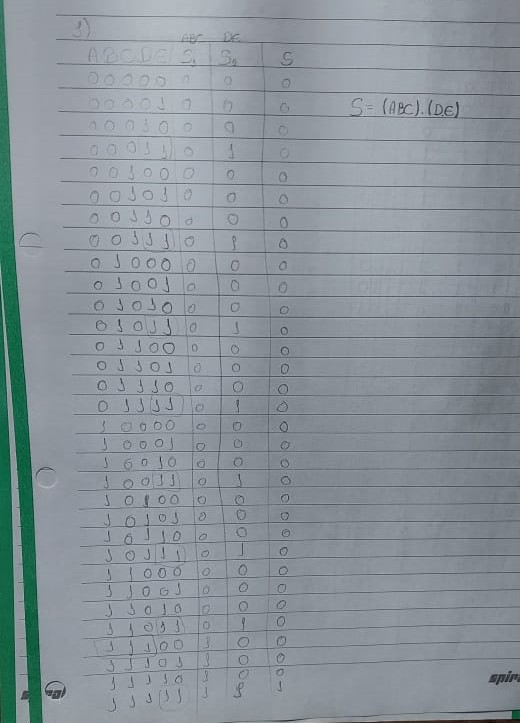 1)
ABC DE
A B C D E S₁ S₂ S
0 0 0 0 0 0 0 0
0 0 0 0 1 0 0 0
S = (ABC).(DE)
0 0 0 1 0 0 0 0
0 0 0 1 1 0 1 0
0 0 1 0 0 0 0 0
0 0 1 0 1 0 0 0
0 0 1 1 0 0 0 0
0 0 1 1 1 0 1 0
0 1 0 0 0 0 0 0
0 1 0 0 1 0 0 0
0 1 0 1 0 0 0 0
0 1 0 1 1 0 1 0
0 1 1 0 0 0 0 0
0 1 1 0 1 0 0 0
0 1 1 1 0 0 0 0
0 1 1 1 1 0 1 0
1 0 0 0 0 0 0 0
1 0 0 0 1 0 0 0
1 0 0 1 0 0 0 0
1 0 0 1 1 0 1 0
1 0 1 0 0 0 0 0
1 0 1 0 1 0 0 0
1 0 1 1 0 0 0 0
1 0 1 1 1 0 1 0
1 1 0 0 0 0 0 0
1 1 0 0 1 0 0 0
1 1 0 1 0 0 0 0
1 1 0 1 1 0 1 0
1 1 1 0 0 1 0 0
1 1 1 0 1 1 0 0
1 1 1 1 0 1 0 0
1 1 1 1 1 1 1 1